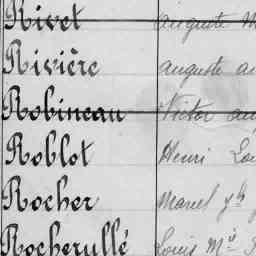 Rivet Auguste M
Rivière Auguste
Robineau Victor
Roblot Henri
Rocher Marcel
Rocherullé Louis